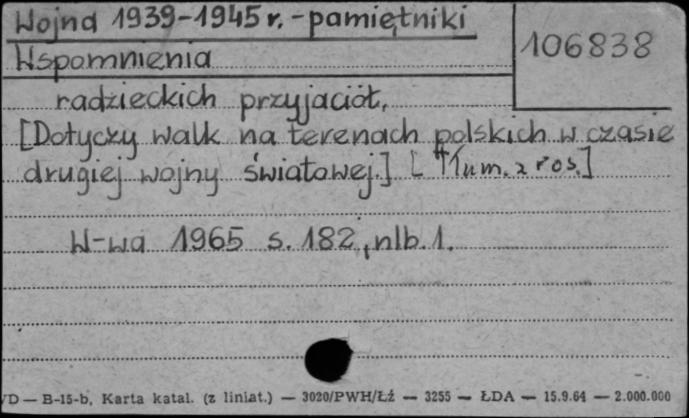 Wojna 1939-1945 r.-pamiętniki
106838
Wspomnienia
radzieckich przyjaciół.
[Dotyczy walk na terenach polskich w czasie
drugiej wojny światowej.] [Tłum. z ros.]
W-wa 1965 s. 182, nlb. 1.
VD — B-15-b, Karta katal. (z liniat.) — 3020/PWH/Łź — 3255 — ŁDA — 15.9.64 — 2.000.000